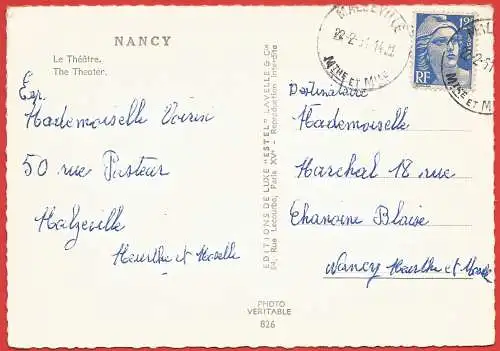 NANCY
Le Théâtre.
The Theater.
Exp.
Mademoiselle Voirin
50 rue Pasteur
Malzeville
Meurthe et Moselle
EDITIONS DE LUXE "ESTEL" LAVELLE & Cie
84, Rue Lecourbe, Paris XVe - Reproduction Interdite
PHOTO
VERITABLE
826
MALZEVILLE
22-2-51
MTHE ET MLLE
12F
RF
Destinataire
Mademoiselle
Marchal 18 rue
Chanoine Blaise
Nancy Meurthe et Moselle